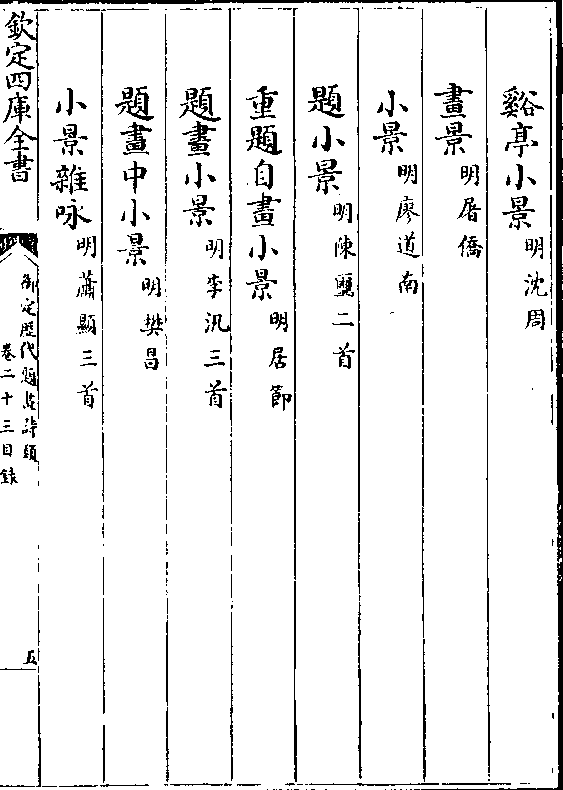 谿亭小景明沈周
畫景明屠僑
小景明廖道南
題小景明陳璽二首
重題自畫小景明居節
題畫小景明李汎三首
題畫中小景明樊昌
小景雜咏明蕭顯三首
欽定四庫全書
御定歷代題畫詩類
卷二十三目錄
五